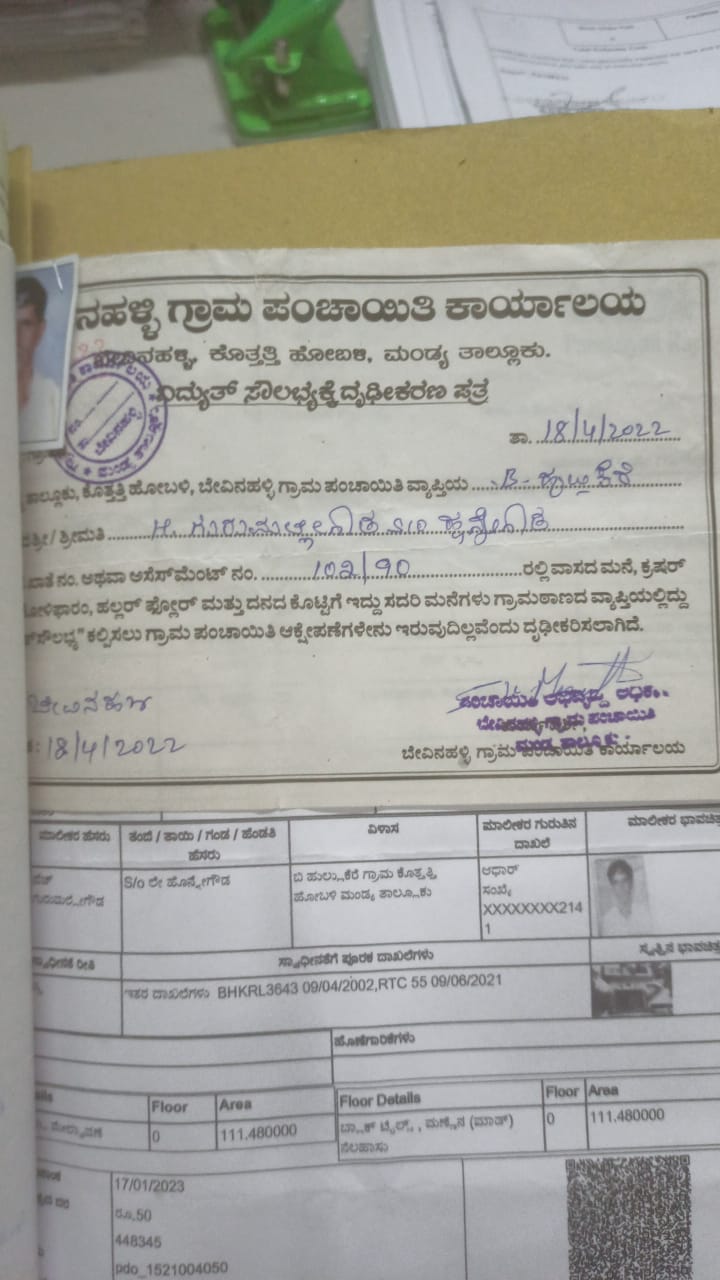 ನಹಳ್ಳಿ ಗ್ರಾಮ ಪಂಚಾಯಿತಿ ಕಾರ್ಯಾಲಯ
ಕೊತ್ತತ್ತಿ ಹೋಬಳಿ, ಮಂಡ್ಯ ತಾಲ್ಲೂಕು.
ವಿದ್ಯುತ್ ಸೌಲಭ್ಯಕ್ಕೆ ದೃಢೀಕರಣ ಪತ್ರ
ಬೇವಿನಹಳ್ಳಿ
ತಾ. 18/4/2022
ತಾಲ್ಲೂಕು, ಕೊತ್ತತ್ತಿ ಹೋಬಳಿ, ಬೇವಿನಹಳ್ಳಿ ಗ್ರಾಮ ಪಂಚಾಯಿತಿ ವ್ಯಾಪ್ತಿಯ B- ಹುಲ್ಲುಕೆರೆ
ಶ್ರೀ / ಶ್ರೀಮತಿ
ಖಾತೆ ನಂ. ಅಥವಾ ಅಸೆಸ್‌ಮೆಂಟ್ ನಂ. 102/90 ರಲ್ಲಿ ವಾಸದ ಮನೆ, ಕ್ರಷರ್
ಕೋಳಿಫಾರಂ, ಹಲ್ಲರ್ ಫ್ಲೋರ್ ಮತ್ತು ದನದ ಕೊಟ್ಟಿಗೆ ಇದ್ದು ಸದರಿ ಮನೆಗಳು ಗ್ರಾಮಠಾಣದ ವ್ಯಾಪ್ತಿಯಲ್ಲಿದ್ದು
ಸೌಲಭ್ಯ" ಕಲ್ಪಿಸಲು ಗ್ರಾಮ ಪಂಚಾಯಿತಿ ಆಕ್ಷೇಪಣೆಗಳೇನು ಇರುವುದಿಲ್ಲವೆಂದು ದೃಢೀಕರಿಸಲಾಗಿದೆ.
ಬೇವಿನಹಳ್ಳಿ
18/4/2022
ಪಂಚಾಯಿತಿ ಅಭಿವೃದ್ಧಿ
ಬೇವಿನಹಳ್ಳಿ ಗ್ರಾಮ ಪಂಚಾಯಿತಿ
ಮಂಡ್ಯ ತಾಲ್ಲೂಕು.
ಬೇವಿನಹಳ್ಳಿ ಗ್ರಾಮ ಪಂಚಾಯಿತಿ ಕಾರ್ಯಾಲಯ
ಮಾಲೀಕರ ಹೆಸರು ತಂದೆ / ತಾಯಿ / ಗಂಡ / ಹೆಂಡತಿ ಹೆಸರು ವಿಳಾಸ ಮಾಲೀಕರ ಗುರುತಿನ ದಾಖಲೆ ಮಾಲೀಕರ ಭಾವಚಿತ್ರ
ಗುರುಮಲ್ಲೇಗೌಡ S/o ಲೇ ಹೊನ್ನೇಗೌಡ ಬಿ ಹುಲ್ಲುಕೆರೆ ಗ್ರಾಮ ಕೊತ್ತತ್ತಿ ಹೋಬಳಿ ಮಂಡ್ಯ ತಾಲ್ಲೂಕು ಆಧಾರ್ ಸಂಖ್ಯೆ XXXXXXXX2141
ಸ್ವಾಧೀನತೆ ರೀತಿ ಸ್ವಾಧೀನತೆಗೆ ಪೂರಕ ದಾಖಲೆಗಳು ಸ್ವತ್ತಿನ ಭಾವಚಿತ್ರ
ಇತರ ದಾಖಲೆಗಳು BHKRL3643 09/04/2002,RTC 55 09/06/2021
ಹೊಣೆಗಾರಿಕೆಗಳು
Floor Area Floor Details Floor Area
0 111.480000 0 111.480000
ನೆಲಹಾಸು
17/01/2023
ರೂ.50
448345
pdo_1521004050